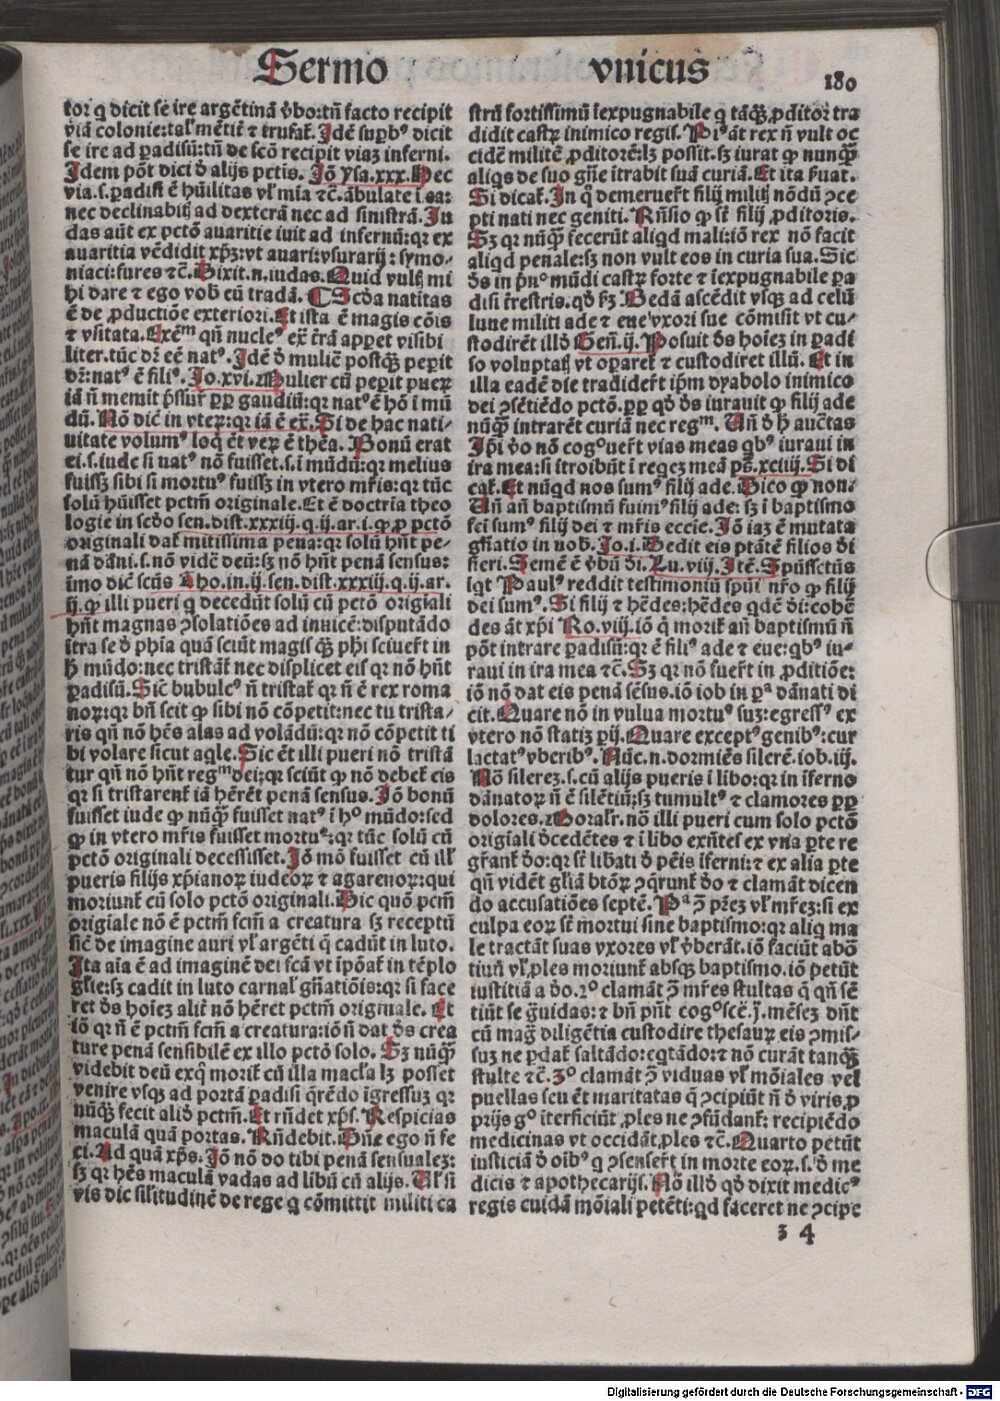 Sermo vnicus 180
tor q dicit se ire argētinā v̄bo:tn̄ facto recipit
viā colonie:tal' mētit̄ ⁊ trufat̄. Idē supb⁹ dicit
se ire ad ꝑadisū:tn̄ de scō recipit viaꝫ inferni.
Idem pōt dici đ alijs pctis. Iō ysa.xxx. Hec
via.s.ꝑadisi ē hūilitas vł mīa ⁊c̄. ābulate ī ea:
nec declinabit̄ ad dexterā nec ad sinistrā. Iu
das aūt ex pctō auaritie iuit ad infernū:qꝛ ex
auaritia vēdidit xp̄ꝫ:vt auari:vsurarij: symo-
niaci:fures ⁊c̄. Dixit.n.iudas. Quid vultꝭ mi
hi dare ⁊ ego vob̄ eū tradā. Scďa natiuitas
ē de ꝓductiōe exteriori. Et ista ē magis cōis
⁊ vsitata. Exēm qn̄ nucle⁹ ex t̄rā appet visibi
liter.tūc dr̄ eē nat⁹. Idē đ muliē postq̄ꝫ peꝑit
dr̄:nat⁹ ē fili⁹. Jo.xvi. Mulier cū peꝑit pueꝝ
iā n̄ memīt p̄ssur̄ ꝓꝑ gaudiū:qꝛ nat⁹ ē hō ī mū
dū. Nō dic̄ in vteꝝ:qꝛ iā ē ex̄. Si de hac nati-
uitate volum⁹ loq̄ ēt veꝝ ē thēa. Bonū erat
ei.s.iude si nat⁹ nō fuisset.s.ī mūdū:qꝛ melius
fuissꝫ sibi si mortu⁹ fuissꝫ in vtero mr̄is:qꝛ tūc
solū hūisset pctm̄ originale. Et ē doctrīa theo
logie in scďo sen.dist.xxxiij.q.ij.ar.i.ꝙ ꝓ pctō
originali dat̄ mitissima pena:qꝛ solū hn̄t pe-
nā dāni.s.nō vidēt deū:sꝫ nō hn̄t penā sensus:
imo dic̄ scūs Tho.in.ij.sen.dist.xxxiij.q.ij.ar.
ij.ꝙ illi pueri q̄ decedūt solū cū pctō origīali
hn̄t magnas ↄsolatiōes ad inuicē:disputādo
ītra se đ phīa quā sciūt magis q̄ꝫ phī sciuer̄t in
h̄ mūdo:nec tristāt̄ nec displicet eis qꝛ nō hn̄t
ꝑadisū. Sic̄ bubulc⁹ n̄ tristat̄ qꝛ n̄ ē rex roma
noꝝ:qꝛ bn̄ scit ꝙ sibi nō cōpetit:nec tu trista-
ris qn̄ nō hēs alas ad volādū:qꝛ nō cōpetit ti
bi volare sicut aq̄le. Sic ēt illi pueri nō tristā
tur qn̄ nō hn̄t regm̄ dei:qꝛ sciūt ꝙ nō debet̄ eis
qꝛ si tristarent̄ iā hēr̄ēt penā sensus. Iō bonū
fuisset iude ꝙ nūq̄ꝫ fuisset nat⁹ ī h̊ mūdo:sed
ꝙ in vtero mr̄is fuisset mortu⁹:qꝛ tūc solū cū
pctō originali decessisset. Iō mō fuisset cū ill'
pueris filijs xp̄ianoꝝ iudeoꝝ ⁊ agarenoꝝ:qui
moriunt̄ cū solo pctō originali. Dic quō pcm̄
origīale nō ē pctm̄ fcm̄ a creatura sꝫ receptū
sic̄ de imagine auri vł argēti q̄ cadūt in luto.
Ita aīa ē ad imaginē dei fcā vt īpōat̄ in tēplo
glīe:sꝫ cadit in luto carnal' gn̄atiōis:qꝛ si face
ret đs hoīez alit̄ nō hēret pctm̄ originale. Et
iō qꝛ n̄ ē pctm̄ fcm̄ a creatura:iō n̄ dat đs crea
ture penā sensibilē ex illo pctō solo. Sꝫ nūq̄ꝫ
videbit deū exq̄ morit̄ cū illa macł'a lꝫ posset
venire vsqꝫ ad portā ꝑadisi q̄rēdo īgressuꝫ qꝛ
nūq̄ꝫ fecit aliđ pctm̄. Et rn̄det xp̄s. Respicias
maculā quā portas. Rn̄debit. Dn̄e ego n̄ fe
ci. Ad quā xp̄s. Iō nō do tibi penā sensualeꝫ:
sꝫ qꝛ hēs maculā vadas ad libū cū alijs. Vł si
vis dic sil'itudinē de rege q̄ cōmittit militi ca
strū fortissimū ⁊ īexpugnabile q̄ tāq̄ꝫ ꝓditor tra
didit castꝝ inimico regis. Pi⁹ āt rex n̄ vult oc
cidē militē ꝓditorē:lꝫ possit.sꝫ iurat ꝙ nunq̄ꝫ
aliqs de suo gn̄e ītrabit suā curiā. Et ita ẜuat.
Si dicat̄. In q̄ demeruer̄t filij militꝭ nōdū ↄce
pti nati nec geniti. Rn̄sio ꝙ st̄ filij ꝓditoris.
Sꝫ qꝛ nūq̄ꝫ fecerūt aliqđ mali:iō rex nō facit
aliqđ penale:sꝫ non vult eos in curia sua. Sic
đs in pn̊ mūdi castꝝ forte ⁊ īexpugnabile ꝑa
disi t̄restris.qđ ẜꝫ Bedā ascēdit vsqꝫ ad celū
lune militi ade ⁊ eue vxori sue cōmisit vt cu-
stodirēt illđ Gen̄.ij. Posuit đs hoīez in ꝑadi
so voluptatꝭ vt oꝑaret̄ ⁊ custodiret illū. Et in
illa eadē die tradider̄t ip̄m dyabolo inimico
dei ↄsētiēdo pctō.ꝓꝑ qđ đs iurauit ꝙ filij ade
nūq̄ꝫ intrarēt curiā nec regm̄. Vn̄ đ h̄ auctas
Ip̄i v̊o nō cog°uer̄t vias meas qb⁹ iuraui in
ira mea:si ītroibūt ī regeꝫ meā ps.xciiij. Si di
cat̄. Et nūqđ nos sum⁹ filij ade. Dico ꝙ non.
Vn̄ an̄ baptismū fuim⁹ filij ade: sꝫ ī baptismo
fci sum⁹ filij dei ⁊ mr̄is eccīe. Iō iaꝫ ē mutata
gn̄atio in nob̄. Jo.i. Dedit eis ptātē filios đi
fieri. Semē ē v̄bū đi. Lu.viij. Itē. Spūssctūs
īqt Paul⁹ reddit testimoniū spūi nr̄o ꝙ filij
dei sum⁹. Si filij ⁊ hēdes:hēdes qđē đi:cohē
des āt xp̄i Ro.viij.iō q̄ morit̄ an̄ baptismū n̄
pōt intrare ꝑadisū:qꝛ ē fili⁹ ade ⁊ eue:qb⁹ iu-
raui in ira mea ⁊c̄. Sꝫ qꝛ nō fuer̄t in ꝓditiōe:
iō nō dat eis penā sēsus.iō iob in pa dānati di
cit. Quare nō in vulua mortu⁹ suꝫ:egress⁹ ex
vtero nō statiꝫ pij. Quare except⁹ genib⁹:cur
lactat⁹ vberib⁹. Nūc.n.dormiēs silerē.iob.iij.
Nō silereꝫ.s.cū alijs pueris ī libo:qꝛ in īferno
dānatoꝝ n̄ ē silētiū:sꝫ tumult⁹ ⁊ clamores ꝓꝑ
dolores. Moralr̄.nō illi pueri cum solo pctō
origīali đcedētes ⁊ ī libo exn̄tes ex vna ꝑte re
gr̄ant̄ đo:qꝛ st̄ libati đ pēis īferni:⁊ ex alia ꝑte
qn̄ vidēt gl'iā btōꝝ ↄq̄runt̄ đo ⁊ clamāt dicen
do accusatiōes septē. Pa ↄ̄ pr̄ez vł mr̄ez:si ex
culpa eoꝝ st̄ mortui sine baptismo:qꝛ aliq̄ ma
le tractāt suas vxores vł v̄berāt.iō faciūt abō
tiuū vł ꝓles moriunt̄ absqꝫ baptismo.iō petūt
iustitiā a đo.2° clamāt ↄ̄ mr̄es stultas q̄ qn̄ sē
tiūt se g̊uidas:⁊ bn̄ pn̄t cog°scē.j.mēseꝫ dn̄t
cū mag̊ diligētia custodire thesauꝝ eis ↄmis-
suꝫ ne ꝑdat̄ saltādo:eqtādo:⁊ nō curāt tanq̄ꝫ
stulte ⁊c̄.3° clamāt ↄ̄ viduas vł mōiales vel'
puellas seu ēt maritatas q̄ ↄcipiūt n̄ đ viris.ꝓ
prijs g° īterficiūt ꝓles ne ↄfūdant̄: recipiēdo
medicinas vt occidāt.ꝓles ⁊c̄. Quarto petūt
iusticiā đ oib⁹ q̄ ↄsenser̄t in morte eoꝝ.s.đ me
dicis ⁊ apothecarijs. Nō illđ qđ dixit medic⁹
regis cuidā mōiali petēti:qđ faceret ne ↄcipe
3 4
Digitalisierung gefördert durch die Deutsche Forschungsgemeinschaft - DFG